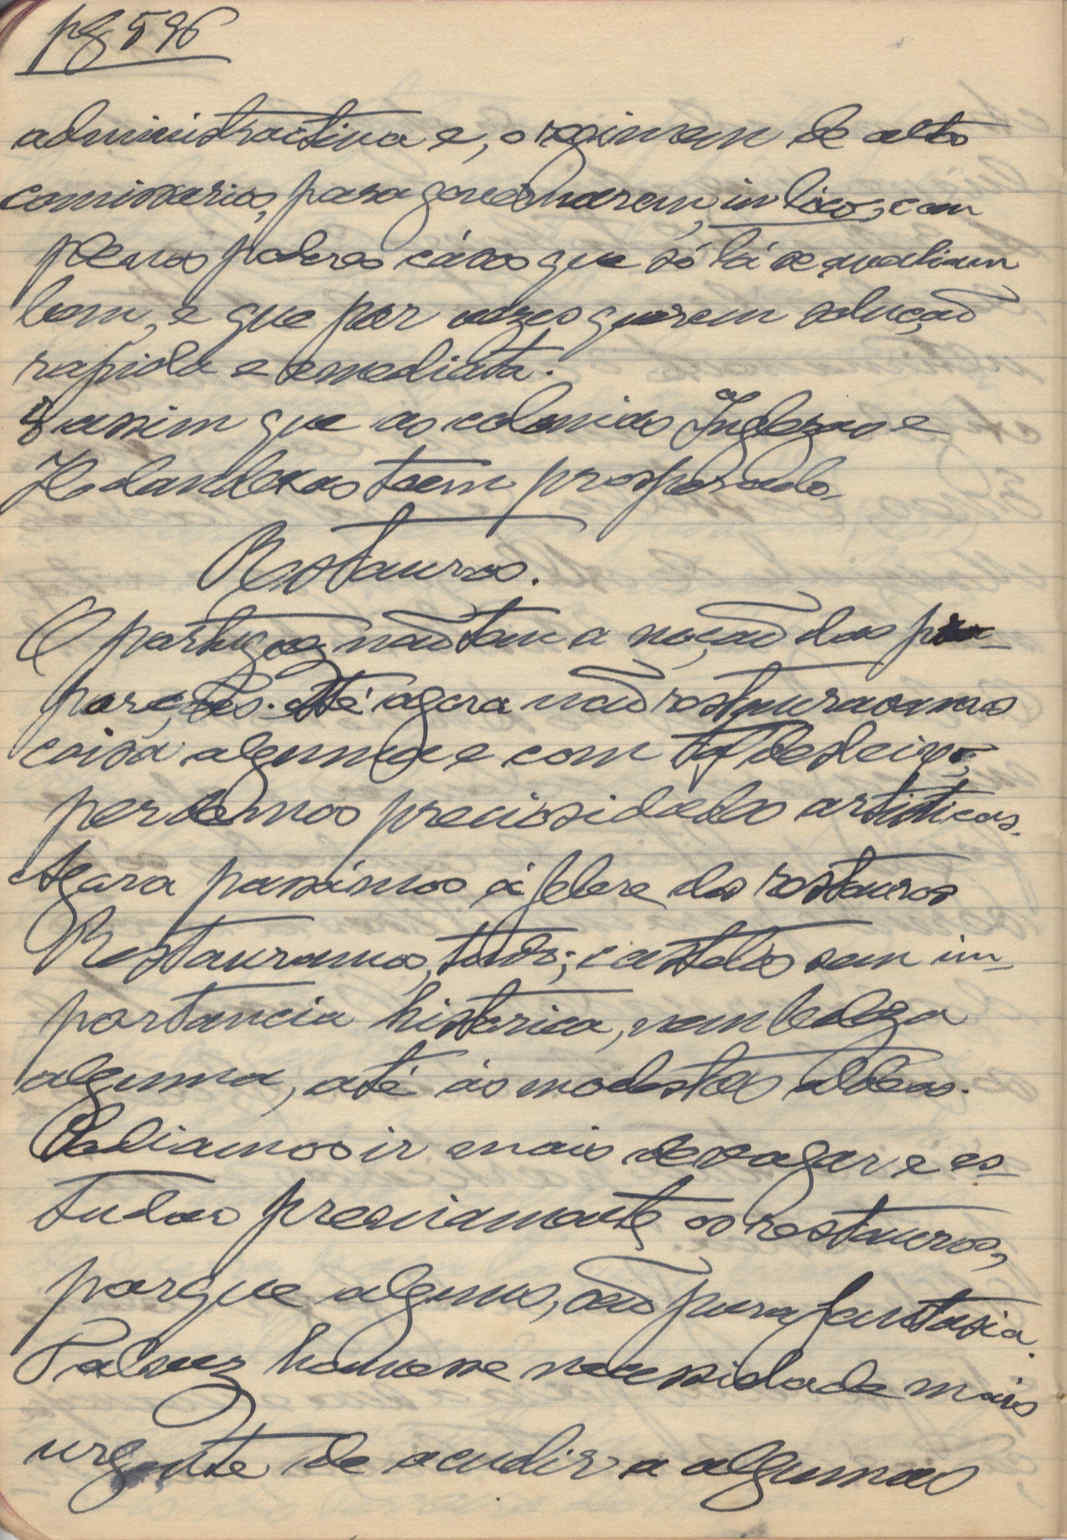 pg 596
administractiva e, o regimem de alto
comissarios, para governarem, in loco, com
plenos poderes cásos que só lá se avaliam
bem, e que por vezes querem solução
rapida e emediata.
É assim que as colonias Inglezas e
Holandezas teem prosperado.
Restauros.
O portuguez não tem a noção das pro-
porções. Até agora não restauravamos
coisa alguma e com tal desleixo,
perdemos preciosidades artisticas.
Agora passámos á febre dos restauros
Restauramos, tudo; castelos sem im-
portancia historica, nem beleza
alguma, até ás modestas aldeas.
Podiamos ir mais devagar e es-
tudar previamente os restauros,
porque alguns, são pura fantasia.
Talvez houvesse necessidade mais
urgente de acudir a algumas